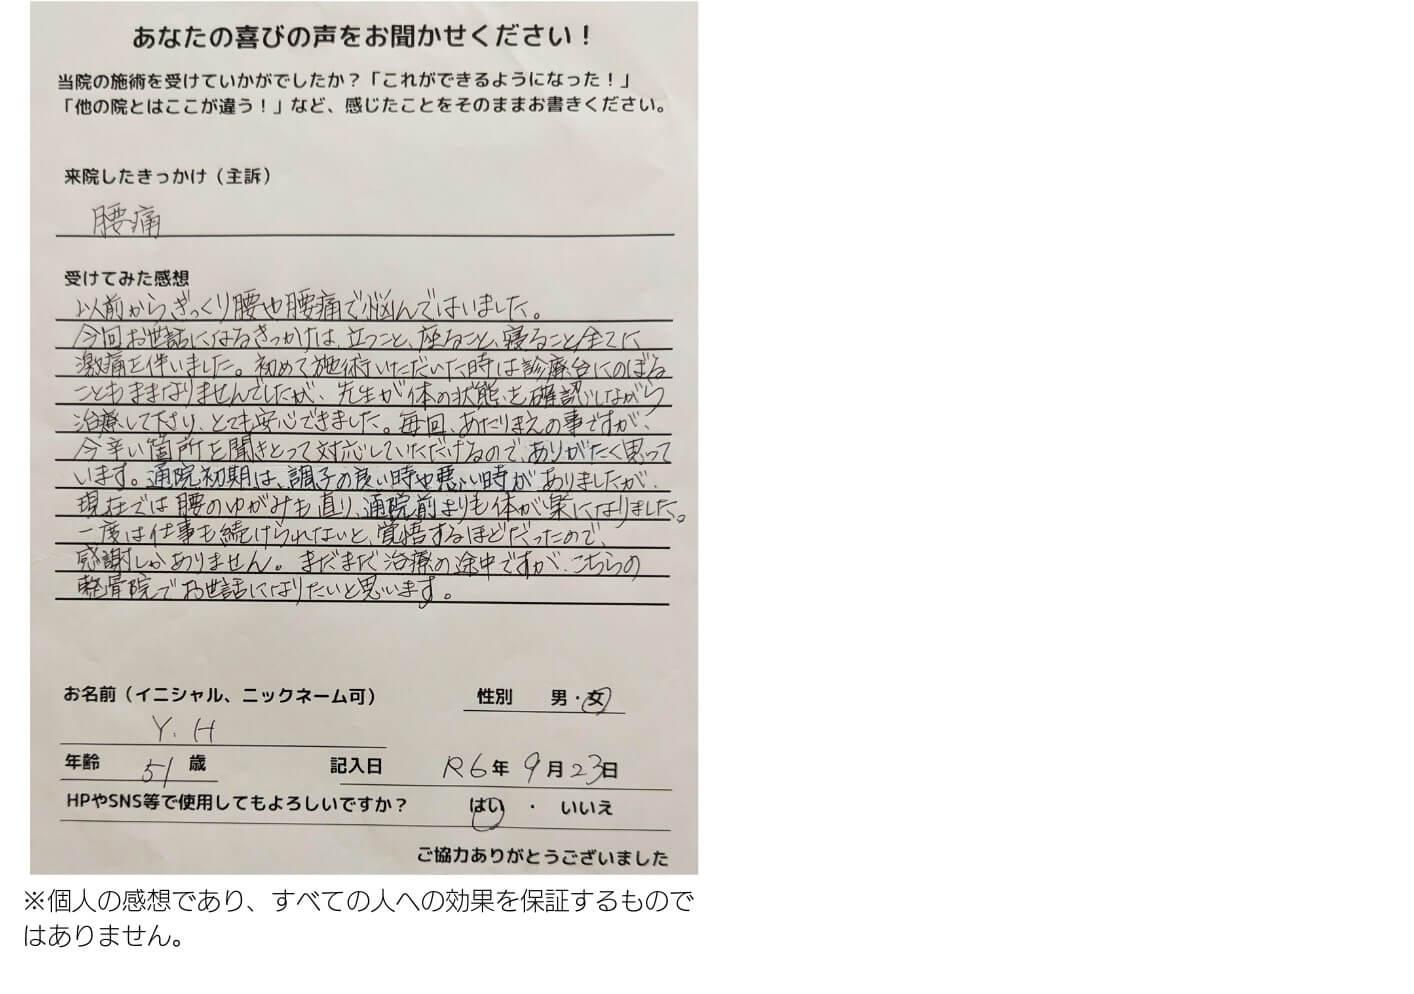 あなたの喜びの声をお聞かせください！
当院の施術を受けていかがでしたか？「これができるようになった！」
「他の院とはここが違う！」など、感じたことをそのままお書きください。
来院したきっかけ（主訴）
腰痛
受けてみた感想
以前からぎっくり腰や腰痛で悩んではいました。
今回お世話になるきっかけは、立つこと、座ること、寝ること全てに
激痛を伴いました。初めて施術いただいた時は診療台にのぼる
こともままなりませんでしたが、先生が体の状態を確認しながら
治療して下さり、とても安心できました。毎回、あたりまえの事ですが、
今辛い箇所を聞きとって対応していただけるので、ありがたく思って
います。通院初期は、調子の良い時や悪い時がありましたが、
現在では腰のゆがみも直り、通院前よりも体が楽になりました。
一度は仕事も続けられないと、覚悟するほどだったので、
感謝しかありません。まだまだ治療の途中ですが、こちらの
整骨院でお世話になりたいと思います。
お名前（イニシャル、ニックネーム可） 性別 男・女
Y.H
年齢 51 歳 記入日 R6年 9月23日
HPやSNS等で使用してもよろしいですか？ はい ・ いいえ
ご協力ありがとうございました
※個人の感想であり、すべての人への効果を保証するもので
はありません。